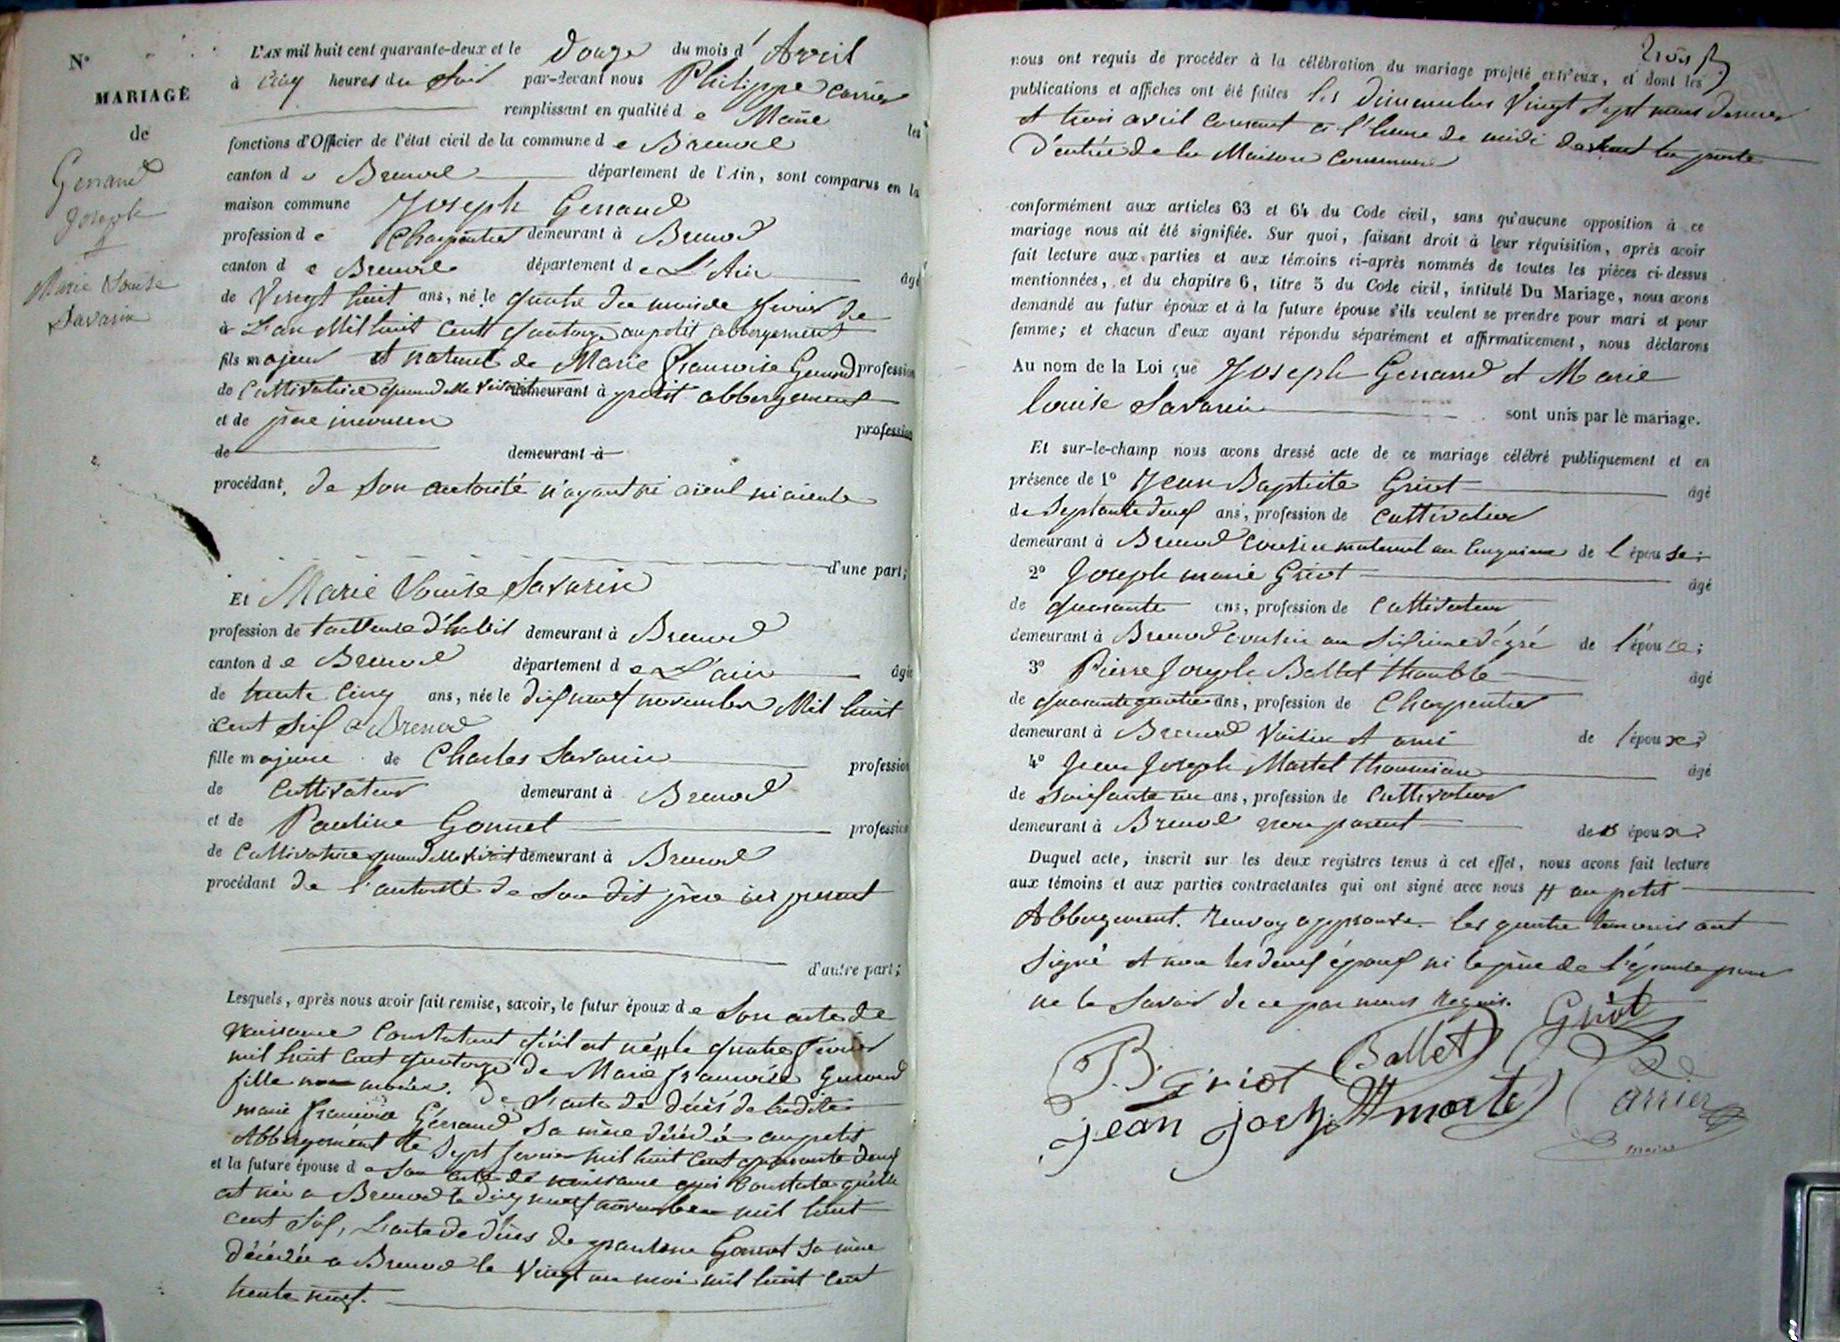 N°
MARIAGE
de
Gerraud
Joseph
&
Marie Louise
Savarin
L'AN mil huit cent quarante-deux et le douze du mois d'Avril
à cinq heures du soir par-devant nous Philippe Carrier
remplissant en qualité de Maire les
fonctions d'Officier de l'état civil de la commune de Brenod
canton de Brenod département de l'Ain, sont comparus en la
maison commune Joseph Gerraud
profession de Charpentier demeurant à Brenod
canton de Brenod département de L'Ain âgé
de vingt huit ans, né le quatre du mois de fevrier de
à L'an Mil huit cent quatorze au petit abbergement
fils majeur et naturel de Marie françoise Gerraud profession
de Cultivatrice quand elle vivait demeurant à petit abbergement
et de père inconnu profession
de demeurant à
procédant, de son autorité n'ayant ni aieul ni aieule
d'une part;
Et Marie Louise Savarin
profession de tailleuse d'habit demeurant à Brenod
canton de Brenod département de L'ain âgée
de trente cinq ans, née le dix neuf novembre Mil huit
cent six à Brenod
fille majeure de Charles Savarin profession
de Cultivateur demeurant à Brenod
et de Pauline Gonnet profession
de Cultivatrice quand elle vivait demeurant à Brenod
procédant de l'autorité de son dit père ici present
d'autre part;
Lesquels, après nous avoir fait remise, savoir, le futur époux de son acte de
naissance constatant qu'il est né # le quatre fevrier
mil huit cent quatorze de Marie françoise Gerraud
fille non mariée. De L'acte de décès de ladite
marie françoise Gérraud sa mère décédée au petit
Abbergement le sept fevrier mil huit cent quarante deux
et la future épouse de son acte de naissance qui constate qu'elle
est née a Brenod le dix neuf novembre mil huit
cent six, L'acte de décès de pauline Gonnet sa mère
décédée a Brenod le vingt un mai mil huit cent
trente neuf.
trois
nous ont requis de procéder à la célébration du mariage projeté entr'eux, et dont les
publications et affiches ont été faites les dimanches vingt sept mars dernier
et trois avril courant à l'heure de midi devant la porte
D'entrée de la Maison commune
conformément aux articles 63 et 64 du Code civil, sans qu'aucune opposition à ce
mariage nous ait été signifiée. Sur quoi, faisant droit à leur réquisition, après avoir
fait lecture aux parties et aux témoins ci-après nommés de toutes les pièces ci-dessus
mentionnées, et du chapitre 6, titre 5 du Code civil, intitulé Du Mariage, nous avons
demandé au futur époux et à la future épouse s'ils veulent se prendre pour mari et pour
femme; et chacun d'eux ayant répondu séparément et affirmativement, nous déclarons
Au nom de la Loi que Joseph Gerraud et Marie
Louise Savarin sont unis par le mariage.
Et sur-le-champ nous avons dressé acte de ce mariage célébré publiquement et en
présence de 1° Jean Baptiste Griot âgé
de septante deux ans, profession de Cultivateur
demeurant à Brenod cousin maternel au cinquième de l'épouse;
2° Joseph marie Griot âgé
de quarante ans, profession de Cultivateur
demeurant à Brenod cousin au sixieme dégré de l'épouse;
3° Pierre Joseph Ballet âgé
de quarante quatre ans, profession de Charpentier
demeurant à Brenod voisin et ami de l'époux;
4° Jean Joseph Martel âgé
de soixante un ans, profession de Cultivateur
demeurant à Brenod non parent des époux.
Duquel acte, inscrit sur les deux registres tenus à cet effet, nous avons fait lecture
aux témoins et aux parties contractantes qui ont signé avec nous # au petit
Abbergement. Renvoy approuvé. les quatre temoins ont
signé et non les deux époux ni le père de l'épouse pour
ne le savoir de ce par nous requis.
Griot
Ballet
J. B. Griot
Carrier
jean joseph martel
maire